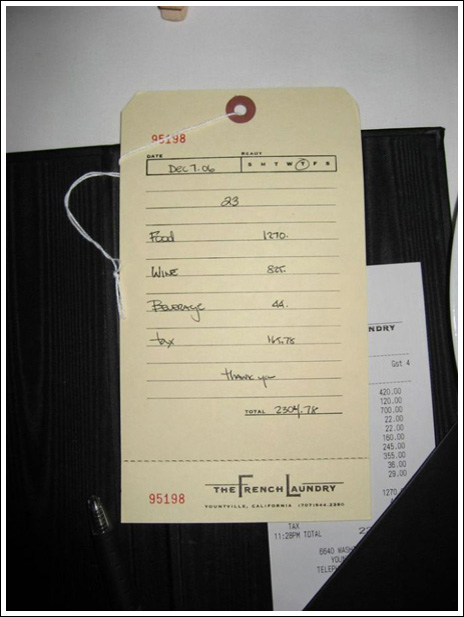 95198
DATE READY
Dec 7.06 S M T W T F S
23
Food 1270.
Wine 825.
Beverage 44.
tax 165.78
thank you
TOTAL 2304.78
95198 THE FRENCH LAUNDRY
YOUNTVILLE, CALIFORNIA (707) 944.2380
LAUNDRY
Gst 4
420.00
120.00
700.00
22.00
22.00
160.00
245.00
355.00
36.00
29.00
1270
TAX
11:28PM TOTAL
6640 WASH
YOUN
TELEP